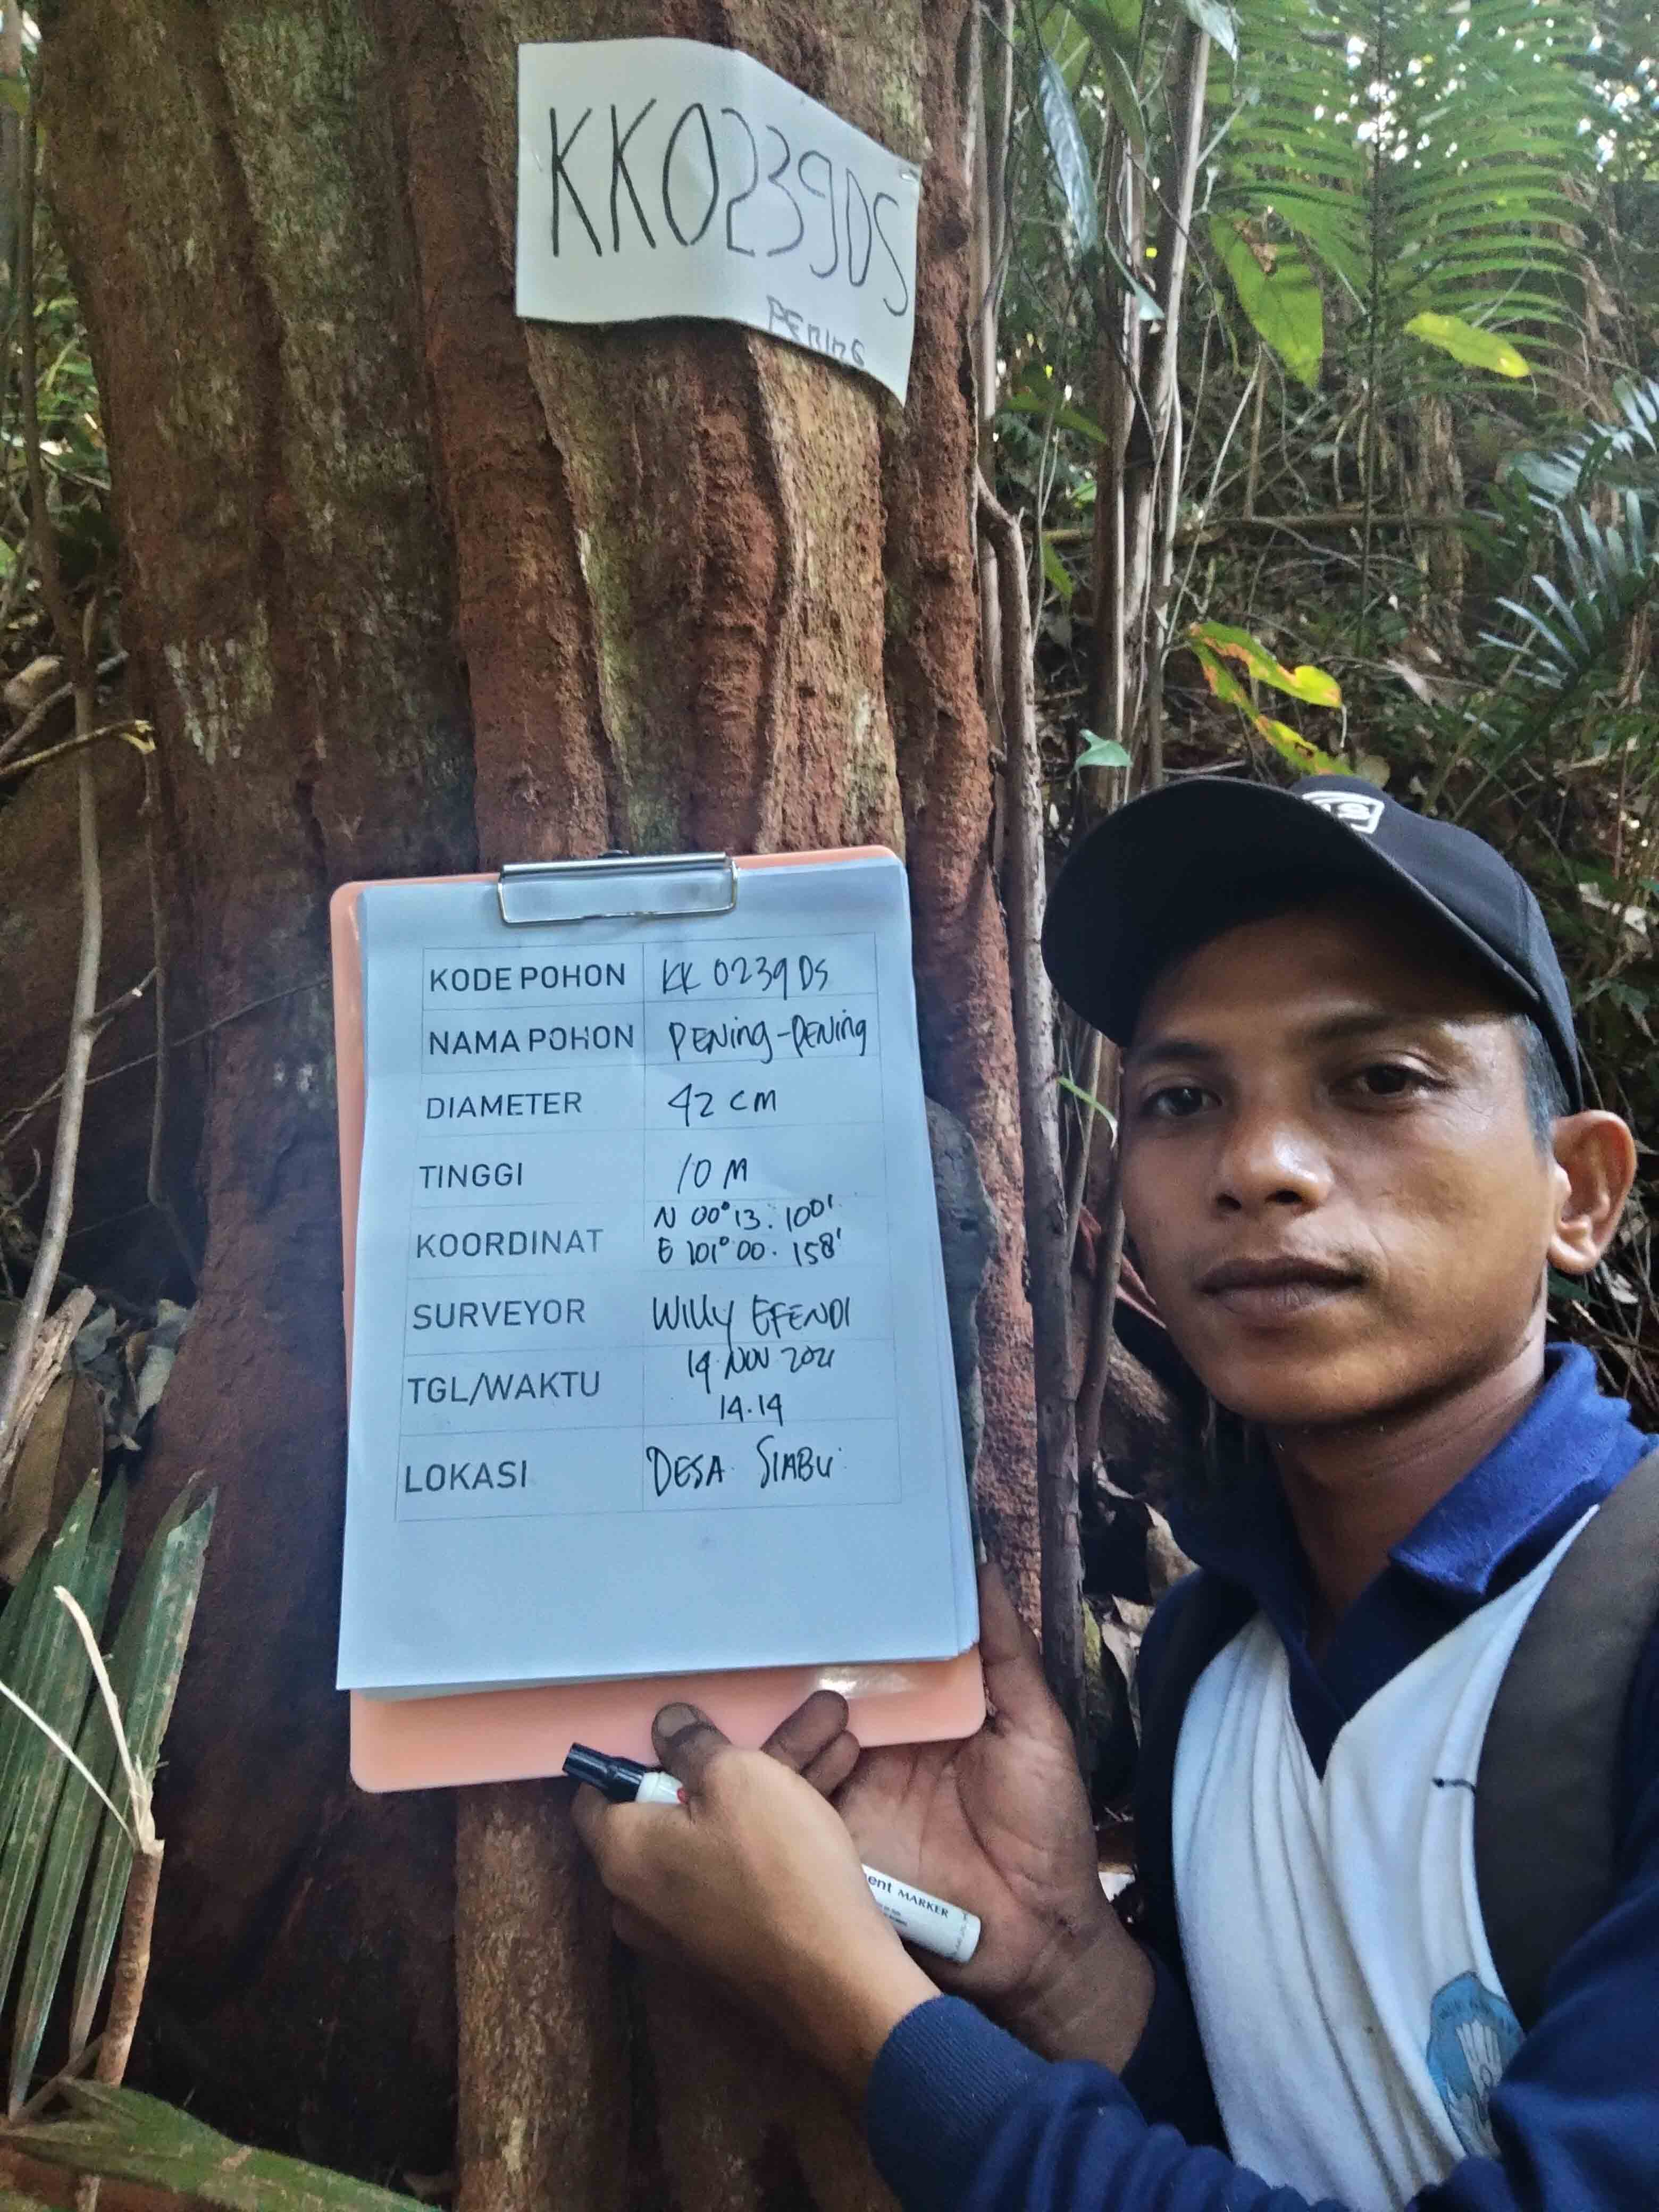 KK0239DS
PENING
KODE POHON KK 0239 DS
NAMA POHON PENing-PENing
DIAMETER 42 CM
TINGGI 10 M
KOORDINAT N 00° 13. 100'
E 101° 00. 158'
SURVEYOR WILLY EFENDI
TGL/WAKTU 14 NOV 2021
14.14
LOKASI DESA SIABU
MARKER